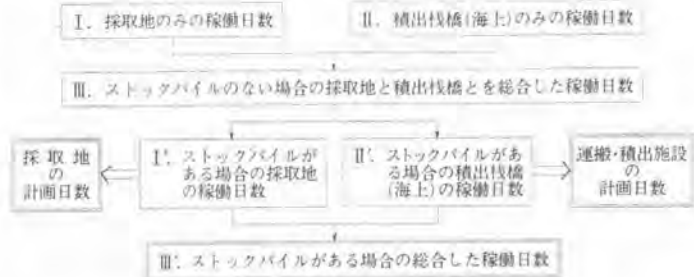 I. 採取地のみの稼働日数
II. 積出桟橋(海上)のみの稼働日数
III. ストックパイルのない場合の採取地と積出桟橋とを総合した稼働日数
採取地
の
計画日数
I'. ストックパイルが
ある場合の採取地
の稼働日数
II'. ストックパイルがあ
る場合の積出桟橋
(海上)の稼働日数
運搬・積出施設
の
計画日数
III'. ストックパイルがある場合の総合した稼働日数